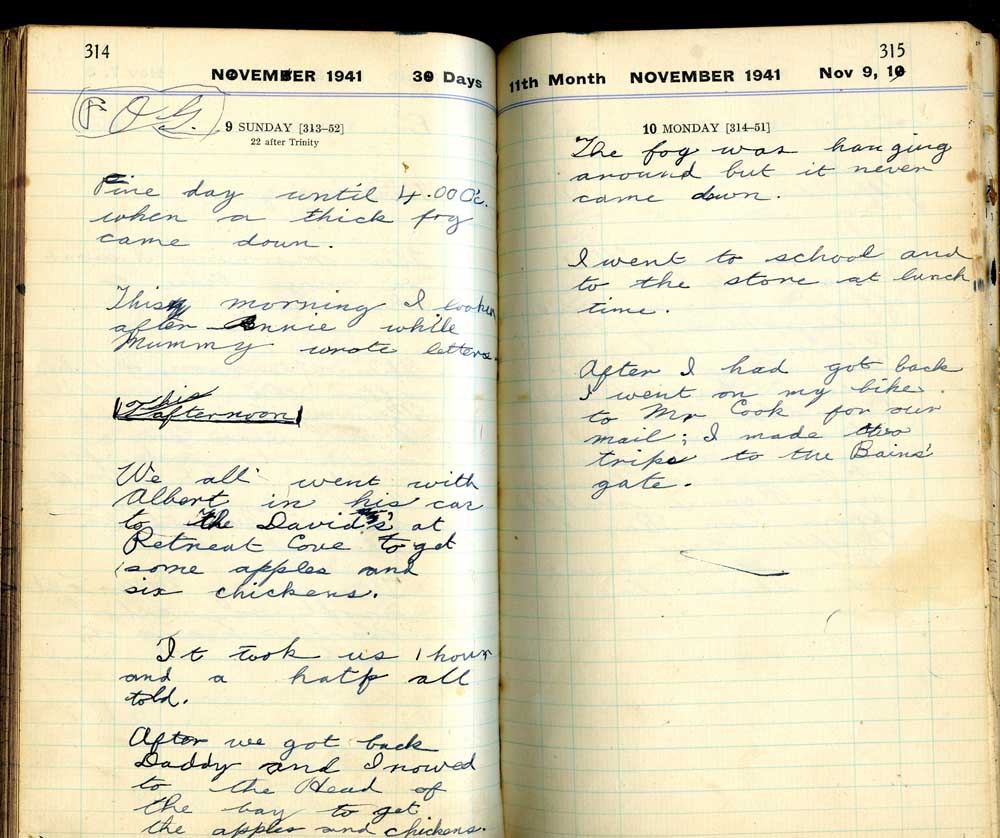 314
NOVEMBER 1941 30 Days
FOG.
9 SUNDAY [313–52]
22 after Trinity
Fine day until 4.00 Oc.
when a thick fog
came down.
This morning I looked
after Annie while
Mummy wrote letters.
This
afternoon
We all went with
Albert in his car
to the David's at
Retreat Cove to get
some apples and
six chickens.
It took us 1 hour
and a half all
told.
After we got back
Daddy and I rowed
to the Head of
the bay to get
the apples and chickens.
315
11th Month NOVEMBER 1941 Nov 9, 10
10 MONDAY [314–51]
The fog was hanging
around but it never
came down.
I went to school and
to the store at lunch
time.
After I had got back
I went on my bike
to Mr Cook for our
mail; I made two
trips to the Bains'
gate.